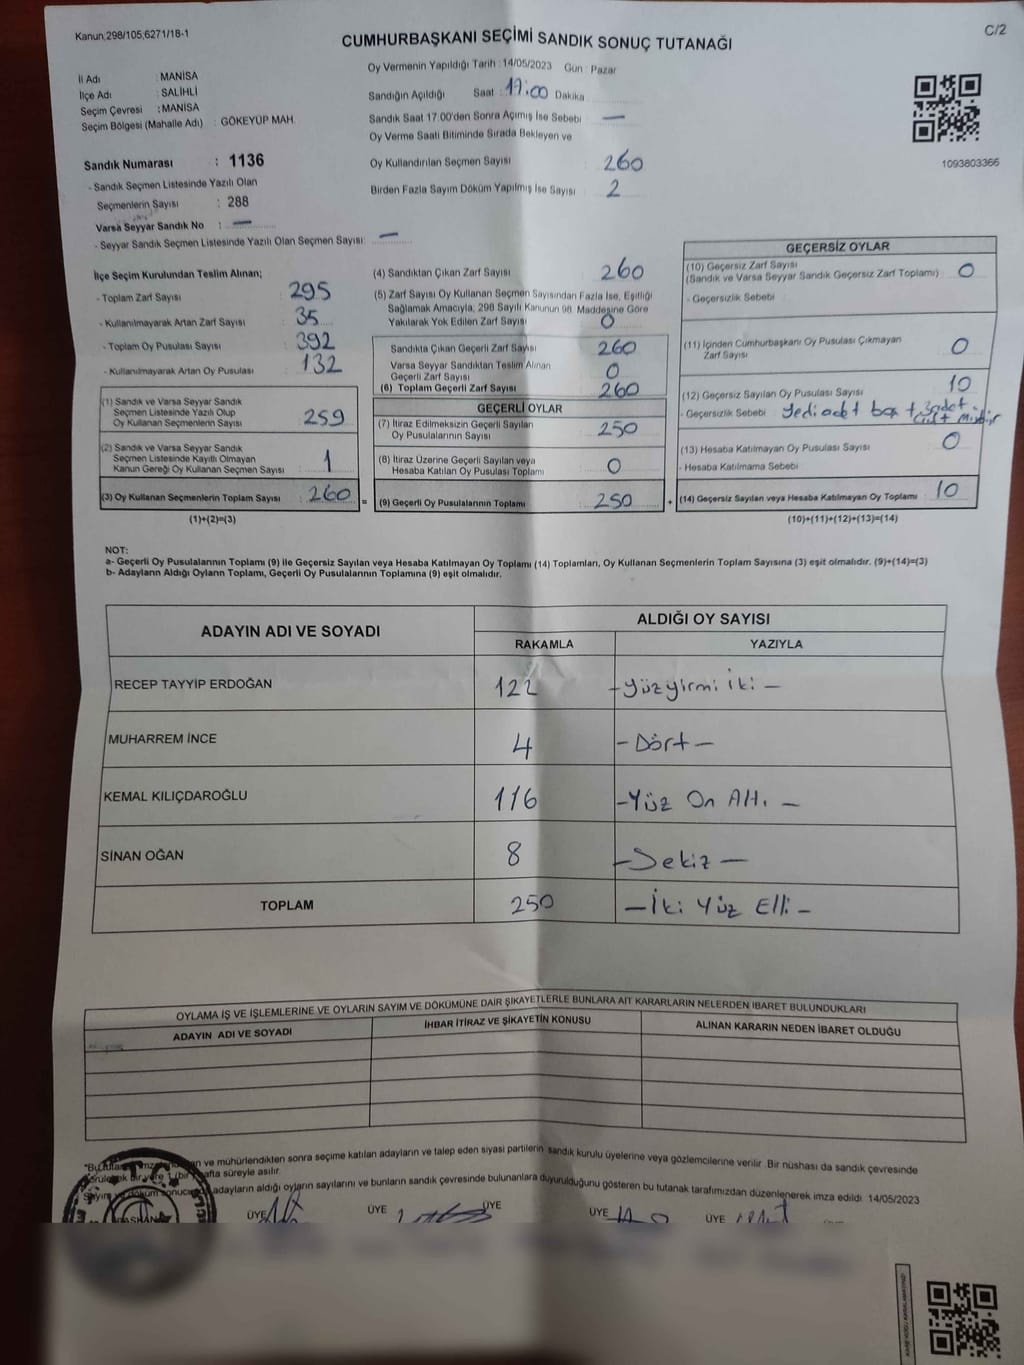 Kanun 298/105;6271/18-1
C/2
CUMHURBAŞKANI SEÇİMİ SANDIK SONUÇ TUTANAĞI
Oy Vermenin Yapıldığı Tarih : 14/05/2023 Gün : Pazar
İl Adı : MANİSA
İlçe Adı : SALİHLİ
Seçim Çevresi : MANİSA
Seçim Bölgesi (Mahalle Adı) : GÖKEYÜP MAH.
Sandığın Açıldığı Saat : 17:00 Dakika
Sandık Saat 17.00'den Sonra Açımış İse Sebebi —
Oy Verme Saati Bitiminde Sırada Bekleyen ve
Oy Kullandırılan Seçmen Sayısı 260
Birden Fazla Sayım Döküm Yapılmış İse Sayısı 2
1093803366
Sandık Numarası : 1136
- Sandık Seçmen Listesinde Yazılı Olan
Seçmenlerin Sayısı : 288
Varsa Seyyar Sandık No : —
- Seyyar Sandık Seçmen Listesinde Yazılı Olan Seçmen Sayısı: —
İlçe Seçim Kurulundan Teslim Alınan;
- Toplam Zarf Sayısı : 295
- Kullanılmayarak Artan Zarf Sayısı : 35
- Toplam Oy Pusulası Sayısı : 392
- Kullanılmayarak Artan Oy Pusulası : 132
(1) Sandık ve Varsa Seyyar Sandık
Seçmen Listesinde Yazılı Olup
Oy Kullanan Seçmenlerin Sayısı : 259
(2) Sandık ve Varsa Seyyar Sandık
Seçmen Listesinde Kayıtlı Olmayan
Kanun Gereği Oy Kullanan Seçmen Sayısı : 1
(3) Oy Kullanan Seçmenlerin Toplam Sayısı : 260 =
(1)+(2)=(3)
(4) Sandıktan Çıkan Zarf Sayısı 260
(5) Zarf Sayısı Oy Kullanan Seçmen Sayısından Fazla İse, Eşitliği
Sağlamak Amacıyla; 298 Sayılı Kanunun 98. Maddesine Göre
Yakılarak Yok Edilen Zarf Sayısı 0
Sandıkta Çıkan Geçerli Zarf Sayısı 260
Varsa Seyyar Sandıktan Teslim Alınan
Geçerli Zarf Sayısı 0
(6) Toplam Geçerli Zarf Sayısı 260
GEÇERLİ OYLAR
(7) İtiraz Edilmeksizin Geçerli Sayılan
Oy Pusulalarının Sayısı : 250
(8) İtiraz Üzerine Geçerli Sayılan veya
Hesaba Katılan Oy Pusulası Toplamı : 0
(9) Geçerli Oy Pusulalarının Toplamı : 250 +
GEÇERSİZ OYLAR
(10) Geçersiz Zarf Sayısı
(Sandık ve Varsa Seyyar Sandık Geçersiz Zarf Toplamı) : 0
- Geçersizlik Sebebi :
(11) İçinden Cumhurbaşkanı Oy Pusulası Çıkmayan
Zarf Sayısı 0
(12) Geçersiz Sayılan Oy Pusulası Sayısı 10
- Geçersizlik Sebebi Yedi adet boş + 3 adet
(13) Hesaba Katılmayan Oy Pusulası Sayısı 0
- Hesaba Katılmama Sebebi
(14) Geçersiz Sayılan veya Hesaba Katılmayan Oy Toplamı 10
(10)+(11)+(12)+(13)=(14)
NOT:
a- Geçerli Oy Pusulalarının Toplamı (9) ile Geçersiz Sayılan veya Hesaba Katılmayan Oy Toplamı (14) Toplamları, Oy Kullanan Seçmenlerin Toplam Sayısına (3) eşit olmalıdır. (9)+(14)=(3)
b- Adayların Aldığı Oyların Toplamı, Geçerli Oy Pusulalarının Toplamına (9) eşit olmalıdır.
ADAYIN ADI VE SOYADI
ALDIĞI OY SAYISI
RAKAMLA YAZIYLA
RECEP TAYYİP ERDOĞAN 122 - Yüzyirmi İki -
MUHARREM İNCE 4 - Dört -
KEMAL KILIÇDAROĞLU 116 - Yüz On Altı -
SİNAN OĞAN 8 - Sekiz -
TOPLAM 250 - İki Yüz Elli -
OYLAMA İŞ VE İŞLEMLERİNE VE OYLARIN SAYIM VE DÖKÜMÜNE DAİR ŞİKAYETLERLE BUNLARA AİT KARARLARIN NELERDEN İBARET BULUNDUKLARI
ADAYIN ADI VE SOYADI İHBAR İTİRAZ VE ŞİKAYETİN KONUSU ALINAN KARARIN NEDEN İBARET OLDUĞU
ve mühürlendikten sonra seçime katılan adayların ve talep eden siyasi partilerin sandık kurulu üyelerine veya gözlemcilerine verilir. Bir nüshası da sandık çevresinde
bir yere 1 (bir) hafta süreyle asılır.
Sayım ve döküm sonucu adayların aldığı oyların sayılarını ve bunların sandık çevresinde bulunanlara duyurulduğunu gösteren bu tutanak tarafımızdan düzenlenerek imza edildi. 14/05/2023
T.C.
BAŞKAN ÜYE ÜYE ÜYE ÜYE ÜYE